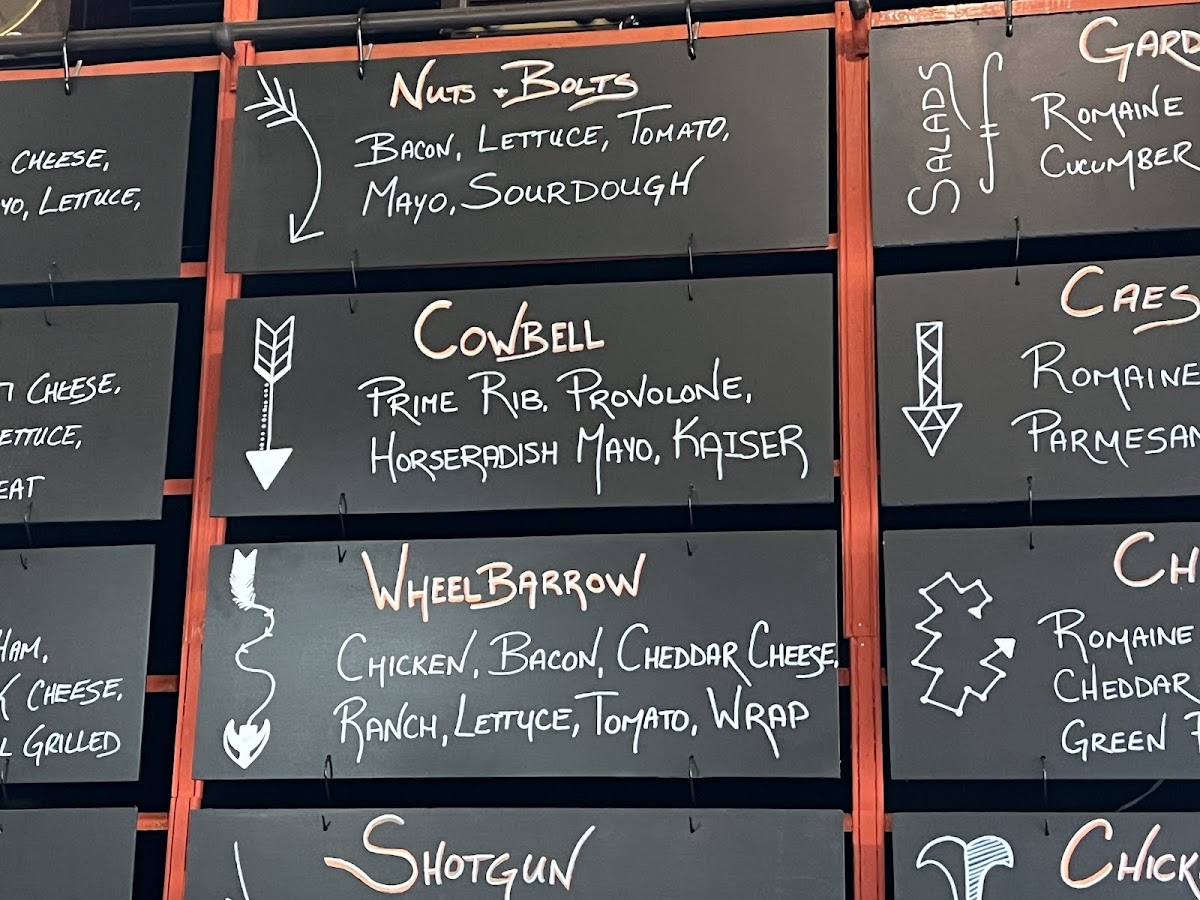 CHEESE,
LETTUCE,
CHEESE,
HAM,
CHEESE,
GRILLED
NUTS + BOLTS
BACON, LETTUCE, TOMATO,
MAYO, SOURDOUGH
COWBELL
PRIME RIB, PROVOLONE,
HORSERADISH MAYO, KAISER
WHEELBARROW
CHICKEN, BACON, CHEDDAR CHEESE,
RANCH, LETTUCE, TOMATO, WRAP
SHOTGUN
SALADS
ROMAINE
CUCUMBER
ROMAINE
PARMESAN
ROMAINE
CHEDDAR
GREEN